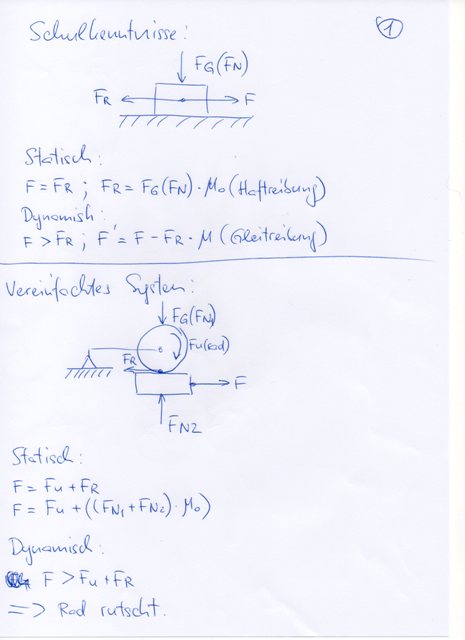 Schulkenntnisse:
1
FG(FN)
FR
F
Statisch:
F = FR ; FR = FG(FN) · μ0 (Haftreibung)
Dynamish:
F > FR ; F' = F - FR · μ (Gleitreibung)
Vereinfachtes System:
FG(FN1)
Fu(rad)
FR
F
FN2
Statisch:
F = Fu + FR
F = Fu + ((FN1 + FN2) · μ0)
Dynamisch:
F > Fu + FR
=> Rad rutscht.